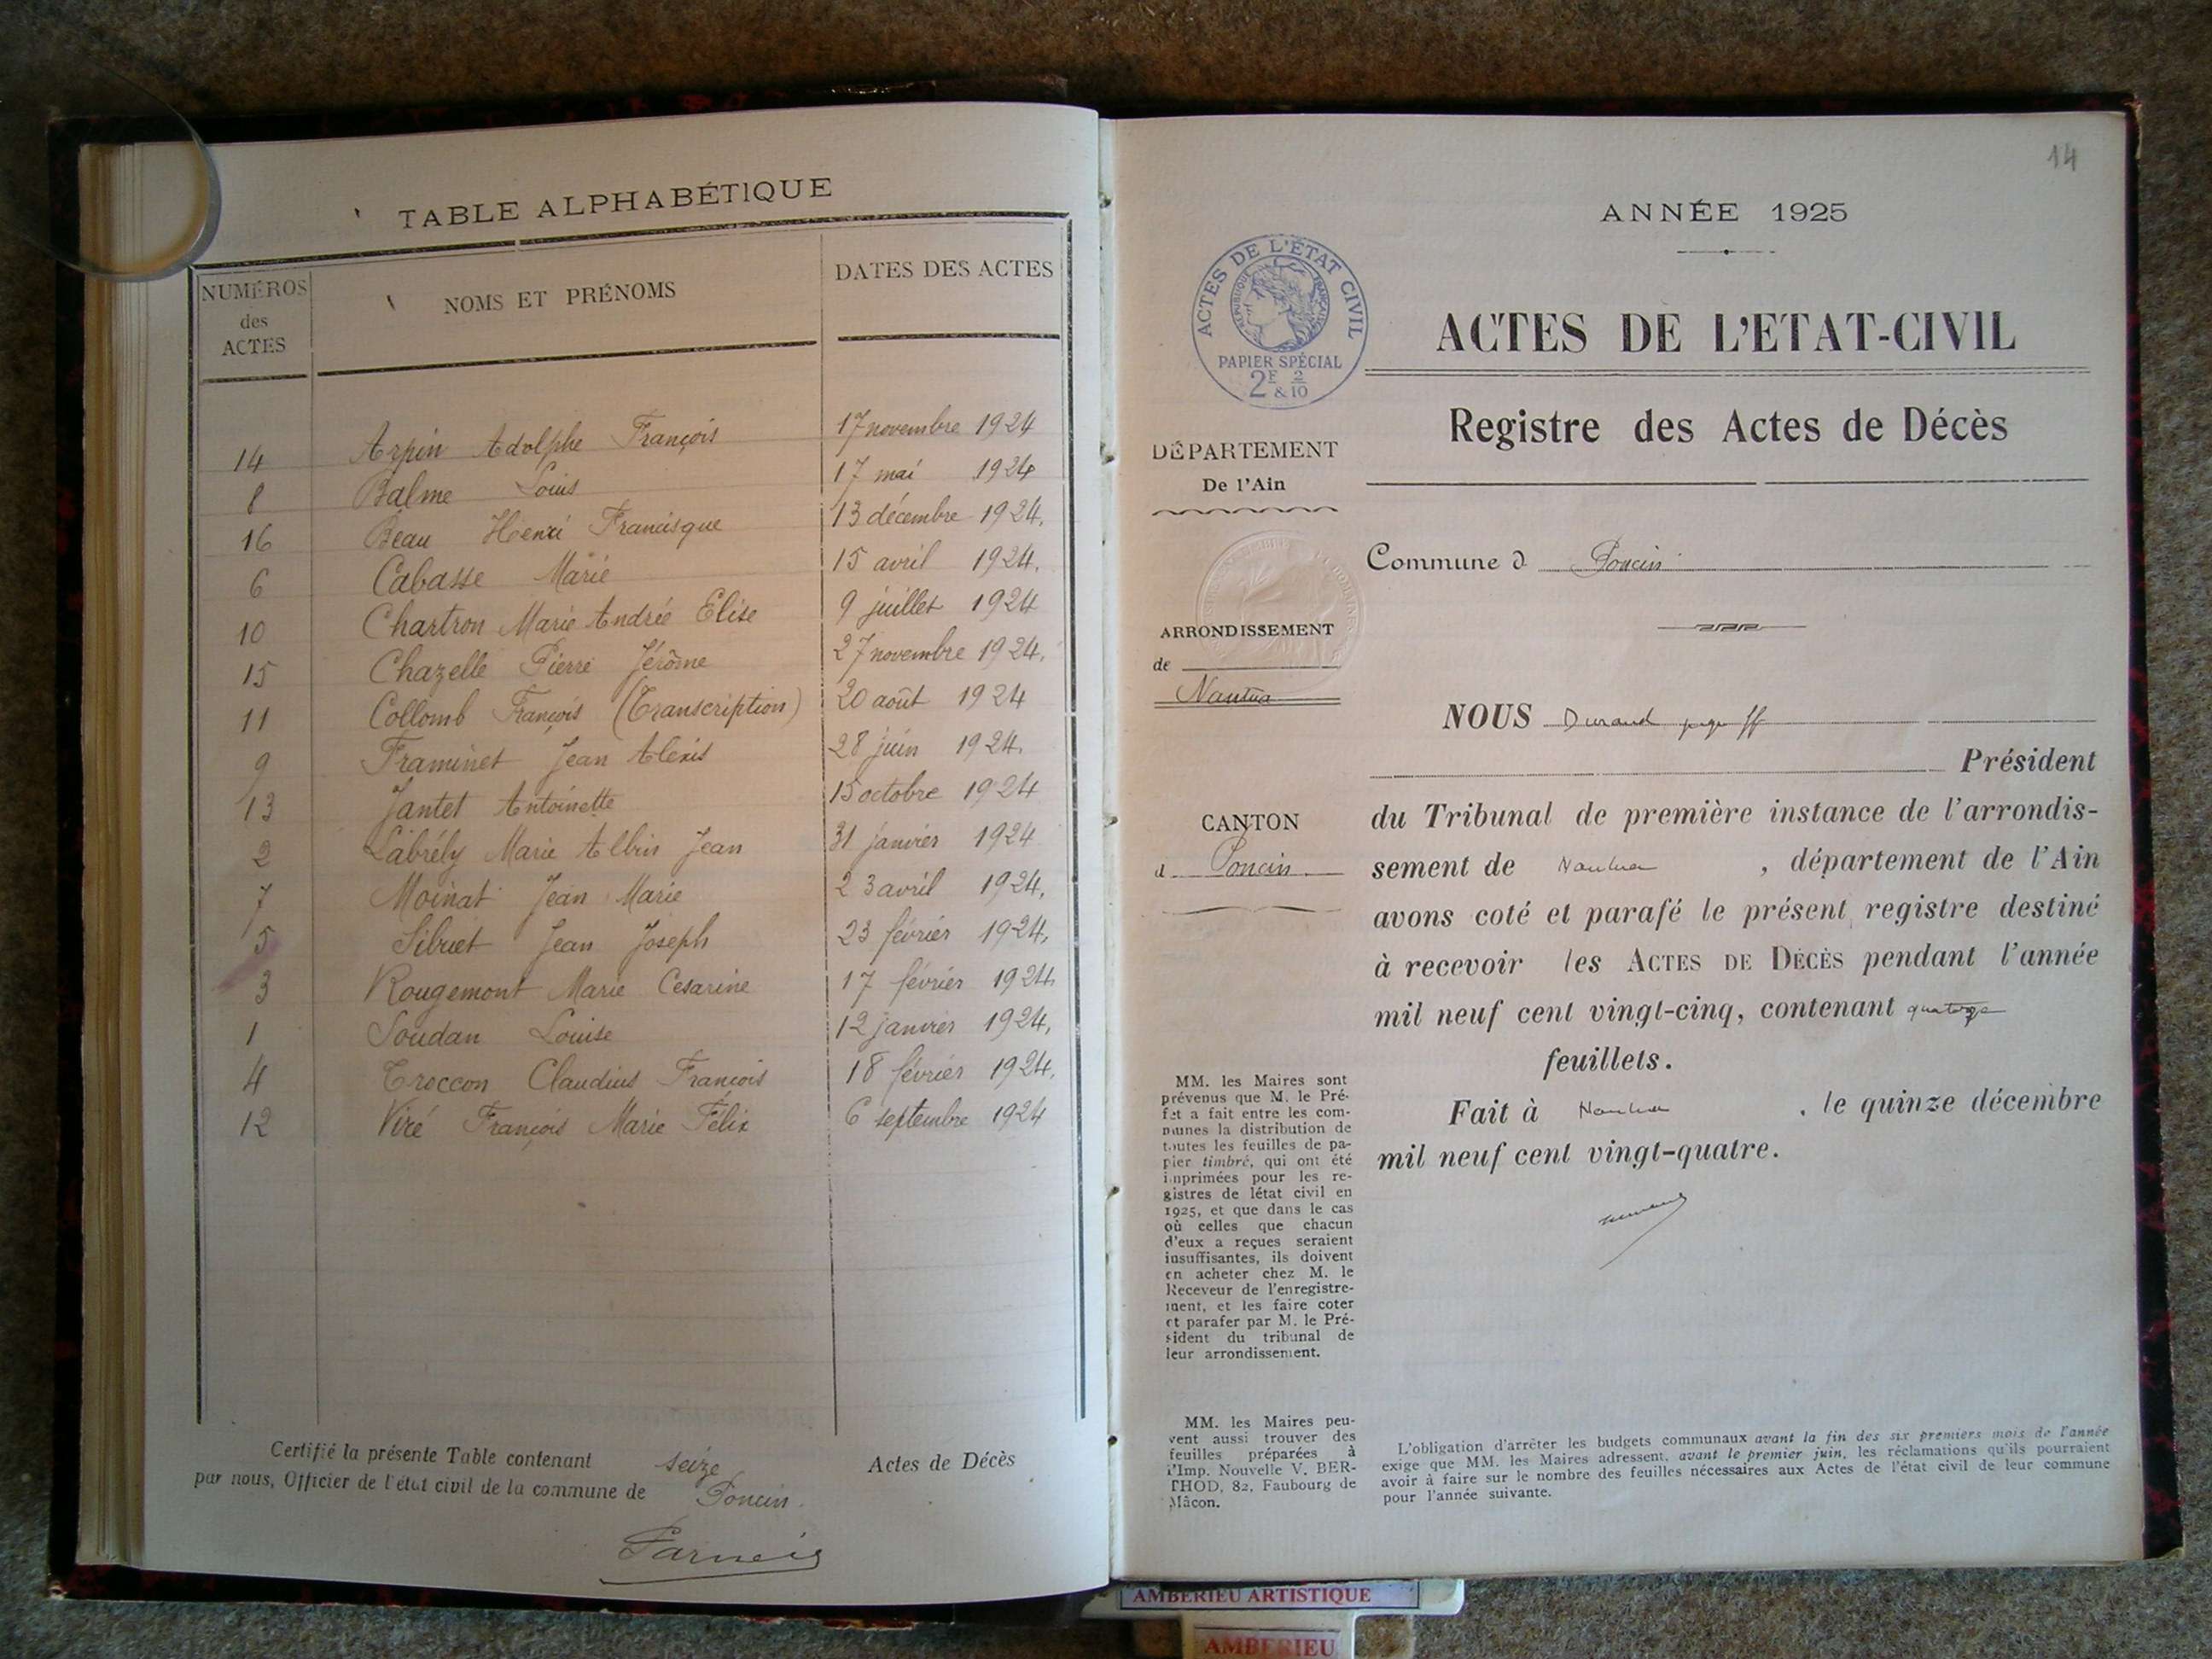 TABLE ALPHABÉTIQUE
NUMÉROS
des
ACTES
NOMS ET PRÉNOMS
DATES DES ACTES
14 Arpin Adolphe François 17 novembre 1924
8 Balme Louis 17 mai 1924
16 Beau Henri Francisque 13 décembre 1924.
6 Cabasse Marie 15 avril 1924.
10 Chartron Marie Andrée Elise 9 juillet 1924
15 Chazelle Pierre Jérôme 27 novembre 1924.
11 Collomb François (Transcription) 20 août 1924
9 Framinet Jean Alexis 28 juin 1924.
13 Jantet Antoinette 15 octobre 1924
2 Labrély Marie Jean 31 janvier 1924
7 Moinat Jean Marie 23 avril 1924.
5 Sibuet Jean Joseph 23 février 1924.
3 Rougemont Marie Cesarine 17 février 1924.
1 Soudan Louise 12 janvier 1924.
4 Troccon Claudius François 18 février 1924.
12 Viré François Marie Félix 6 septembre 1924
Certifié la présente Table contenant seize Actes de Décès
par nous, Officier de l'état civil de la commune de Poncin.
14
ANNÉE 1925
ACTES DE L'ÉTAT CIVIL
RÉPUBLIQUE FRANÇAISE
PAPIER SPÉCIAL
2F & 2/10
ACTES DE L'ETAT-CIVIL
Registre des Actes de Décès
DÉPARTEMENT
De l'Ain
Commune d Poncin
ARRONDISSEMENT
de
Nantua
CANTON
d Poncin
NOUS Durand
Président
du Tribunal de première instance de l'arrondis-
sement de Nantua, département de l'Ain
avons coté et parafé le présent registre destiné
à recevoir les ACTES DE DÉCÈS pendant l'année
mil neuf cent vingt-cinq, contenant quatorze
feuillets.
Fait à Nantua, le quinze décembre
mil neuf cent vingt-quatre.
MM. les Maires sont
prévenus que M. le Pré-
fet a fait entre les com-
munes la distribution de
toutes les feuilles de pa-
pier timbré, qui ont été
imprimées pour les re-
gistres de létat civil en
1925, et que dans le cas
où celles que chacun
d'eux a reçues seraient
insuffisantes, ils doivent
en acheter chez M. le
Receveur de l'enregistre-
ment, et les faire coter
et parafer par M. le Pré-
sident du tribunal de
leur arrondissement.
MM. les Maires peu-
vent aussi trouver des
feuilles préparées à
l'Imp. Nouvelle V. BER-
THOD, 82, Faubourg de
Mâcon.
L'obligation d'arrêter les budgets communaux avant la fin des six premiers mois de l'année
exige que MM. les Maires adressent, avant le premier juin, les réclamations qu'ils pourraient
avoir à faire sur le nombre des feuilles nécessaires aux Actes de l'état civil de leur commune
pour l'année suivante.
AMBERIEU ARTISTIQUE
AMBERIEU